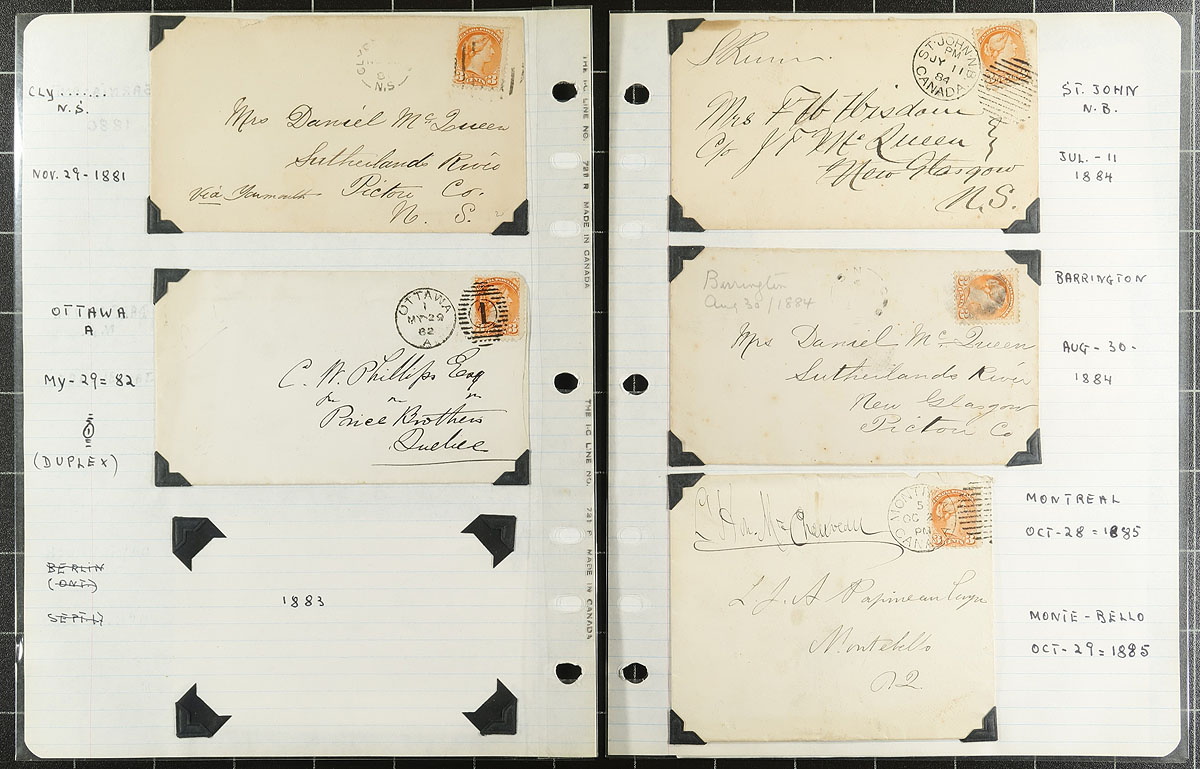 CLY......
N.S.
NOV. 29 - 1881
N.S
Mrs Daniel McQueen
Sutherlands River
via Yarmouth
Pictou Co.
N. S.
OTTAWA
A
MY - 29 = 82
1
(DUPLEX)
OTTAWA
1
MY 29
82
A
1
C. W. Phillips Esq
Price Brothers
Quebec
BERLIN
(ONT)
SEPT 17
1883
THE I-C LINE NO. 721 R MADE IN CANADA
THE I-C LINE NO. 721 R MADE IN CANADA
ST. JOHN N.B.
PM
JY 11
84
CANADA
Mrs F W Wisdom
C/o J F McQueen
New Glasgow
N.S.
ST. JOHN
N.B.
JUL. - 11
1884
Barrington
Aug 30/1884
Mrs Daniel McQueen
Sutherlands River
New Glasgow
Pictou Co
BARRINGTON
AUG - 30 -
1884
5
OC
PM
CAN
L. J. A Papineau
Montebello
P.Q.
MONTREAL
OCT - 28 = 1885
MONTE - BELLO
OCT - 29 = 1885